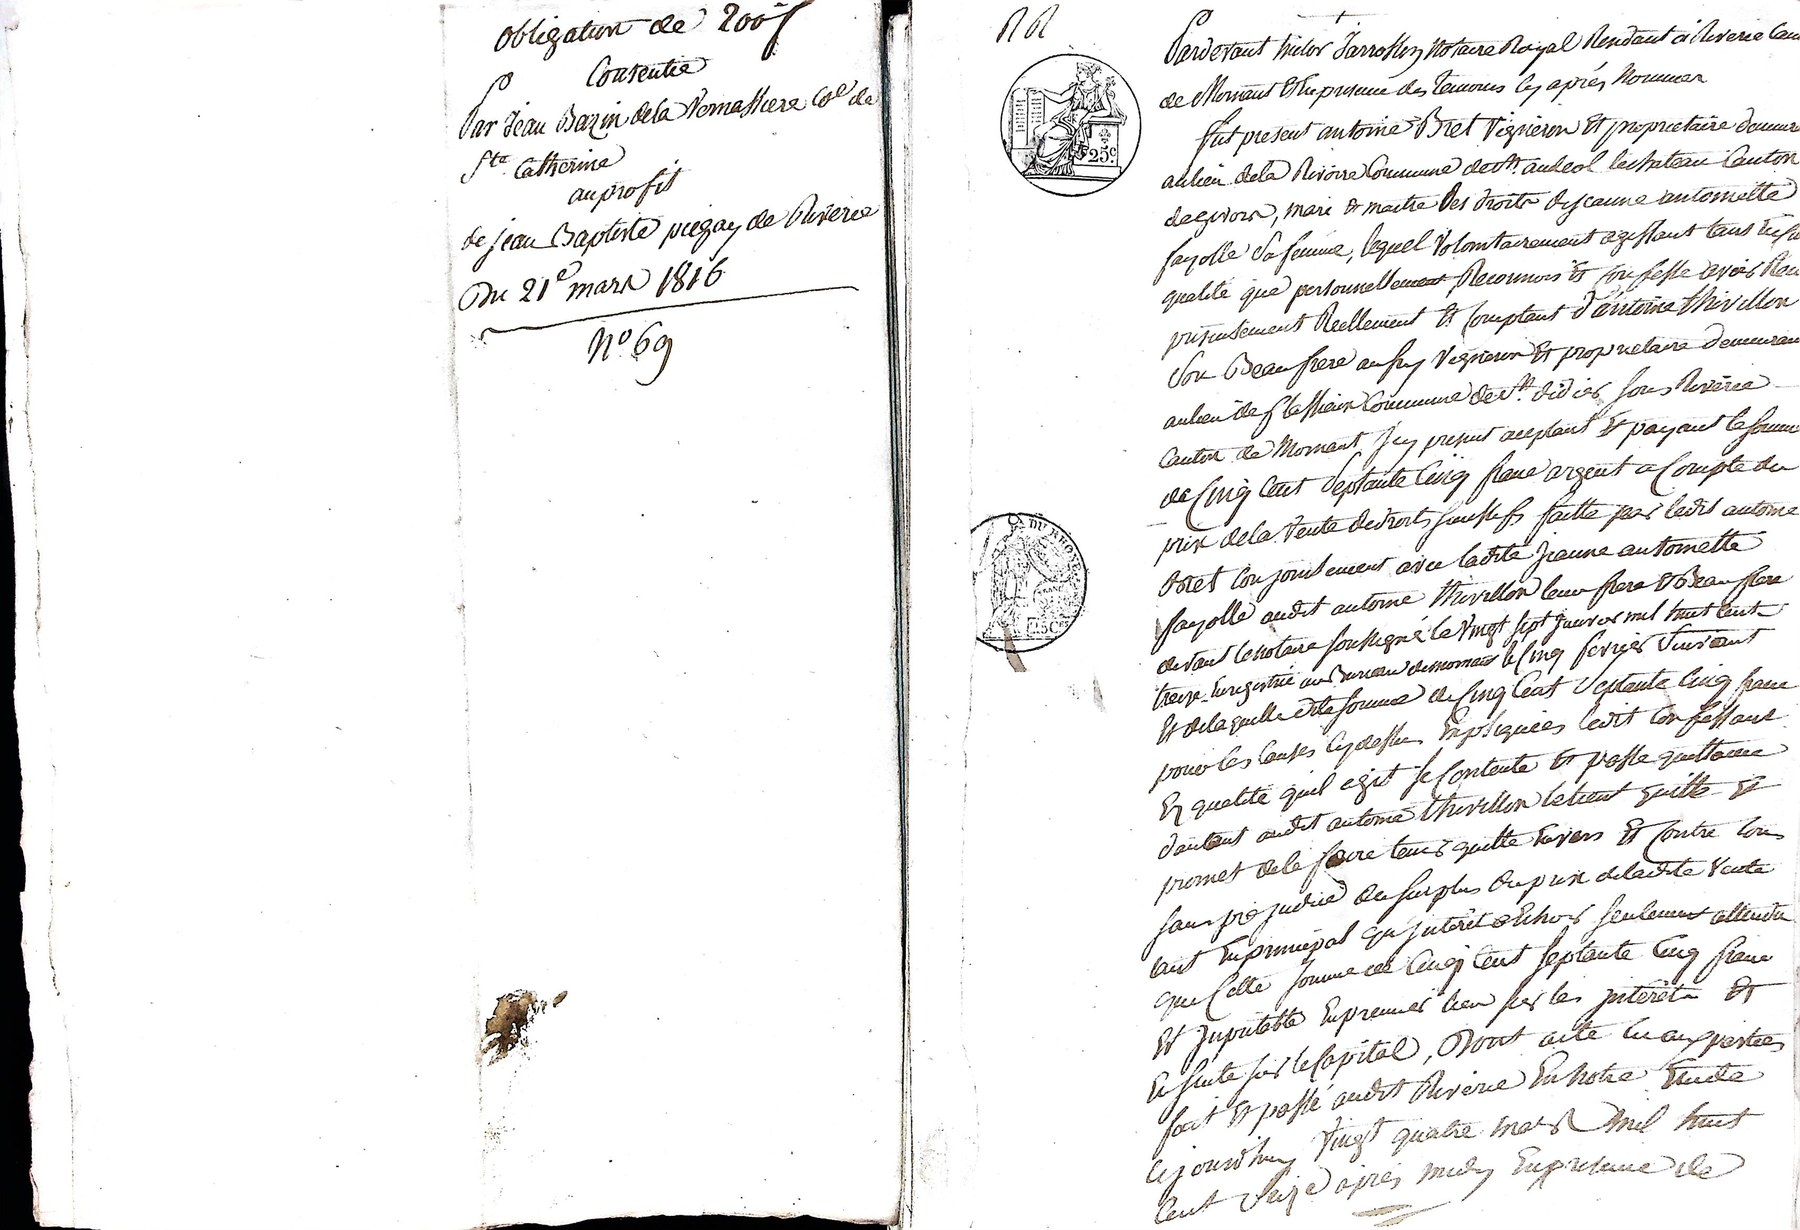 Obligation de 200f
Consentie
Par Jean Bazin de la Commune de
Ste Catherine
au profit
de jean Baptiste piegay de Riverie
Du 21e mars 1816
No 69
Pardevant notaire Royal Résidant à Riverie Can
de Mornant Et En presence des temoins cy après Nommes
fut present antoine Bret Vigneron Et proprietaire demeura
au lieu dela Rivoire Commune de St. andeol lechateau Canton
de givors, mari et maitre des droits de jeanne antoinette
fayolle sa femme, lequel Volontairement agissant tant En sa
qualité que personnellement Reconnois Et Confesse avoir Recu
présentement Reellement Et Comptant d'antoine thivillon
Son Beau frere aussy Vigneron Et proprietaire demeurant
au lieu de flassieux Commune de St. didier sous Riverie
Canton de Mornant Icy present aceptant Et payant la somme
de Cinq Cent Septante Cinq franc argent a Compte du
prix dela Vente de droits sucessifs faitte par ledit antoine
Bret Conjointement avec ladite jeanne antoinette
fayolle audit antoine thivillon leur frere et Beau frere
devant le notaire soussigné le Vingt sept janvier mil huit Cent
treize Enregistrée au Bureau de mornant le Cinq fevrier Suivant
Et de laquelle dite somme de Cinq Cent Septante Cinq franc
pour les Causes cy dessus Expliquées ledit Confessant
En qualité quil agit se Contente Et passe quittance
d'autant audit antoine thivillon le tient quitte Et
promet dele faire tenir quitte Envers Et Contre tous
sans prejudice du surplus du prix de ladite Vente
tant En principal qu'interêt a Echoir seulement attendu
que Cette somme de Cinq Cent septante Cinq franc
Et Imputable En premier lieu sur les interêts Et
Ensuite sur le Capital, Dont acte lu aux parties
fait Et passé audit Riverie En notre Etude
Cejourd'huy Vingt quatre mars Mil huit
Cent Seize après midy En presence de
DU RHONE
25C
25C